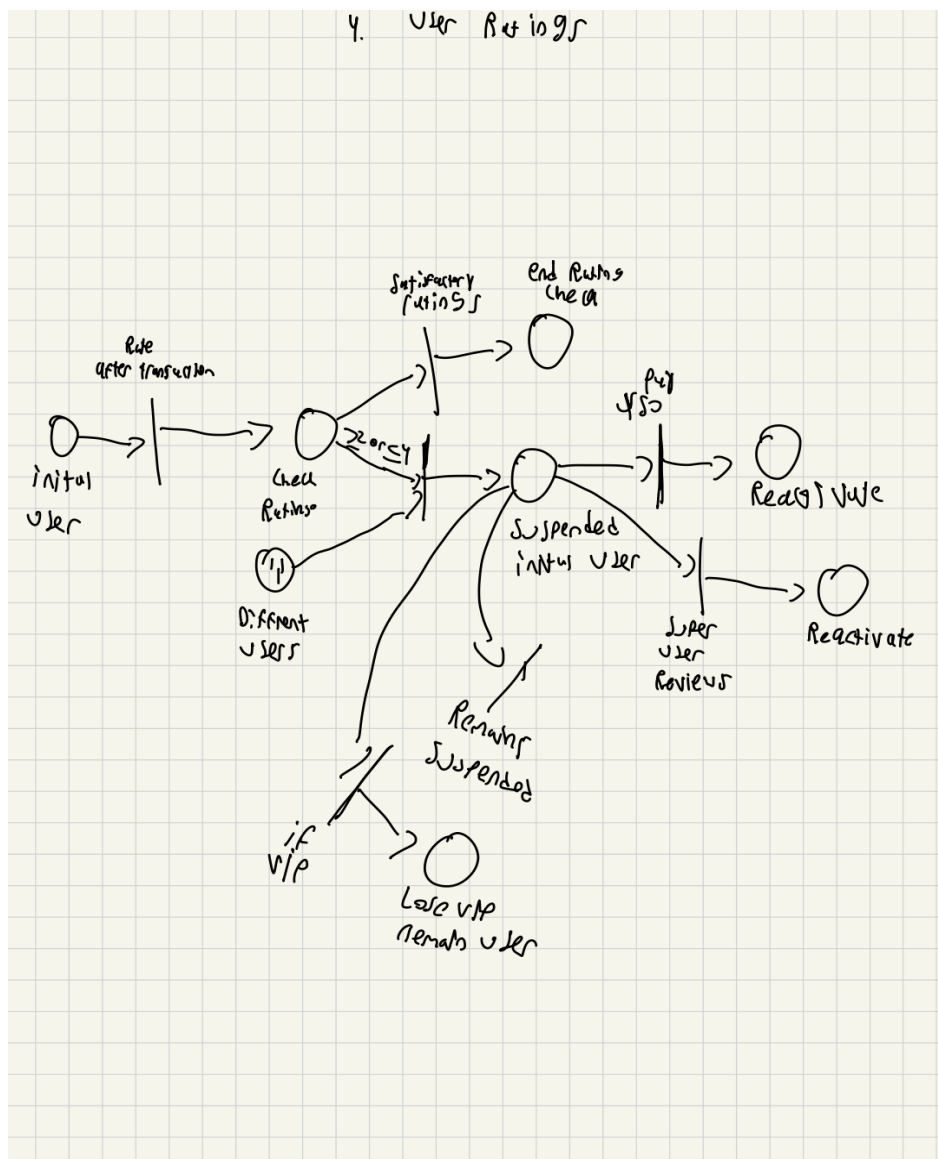 4. User Ratings
Satisfactory
ratings
end Rating
Check
Rate
after transaction
pay
$50
≥2 or ≤4
inital
user
Check
Ratings
Suspended
inital user
Reactivate
Diffrent
users
Super
user
Reviews
Reactivate
Remains
Suspended
if
VIP
Lose VIP
remain user